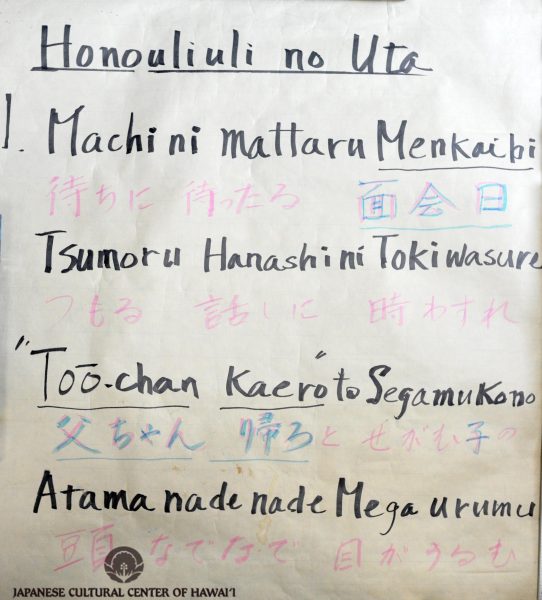 Honouliuli no Uta
1. Machi ni mattaru Menkaibi
待ちに 待ったる 面会日
Tsumoru Hanashi ni Toki wasure
つもる 話しに 時わすれ
"Toō-chan Kaero" to Segamu Kono
父ちゃん 帰ろと せがむ子の
Atama nade nade Mega urumu
頭なでなで 目がうるむ
JAPANESE CULTURAL CENTER OF HAWAI'I